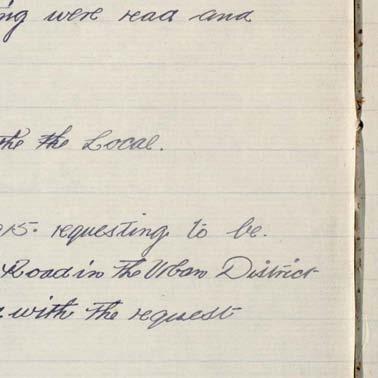 ng were read and
the the Local.
15. requesting to be.
Road in the Urban District
with the request